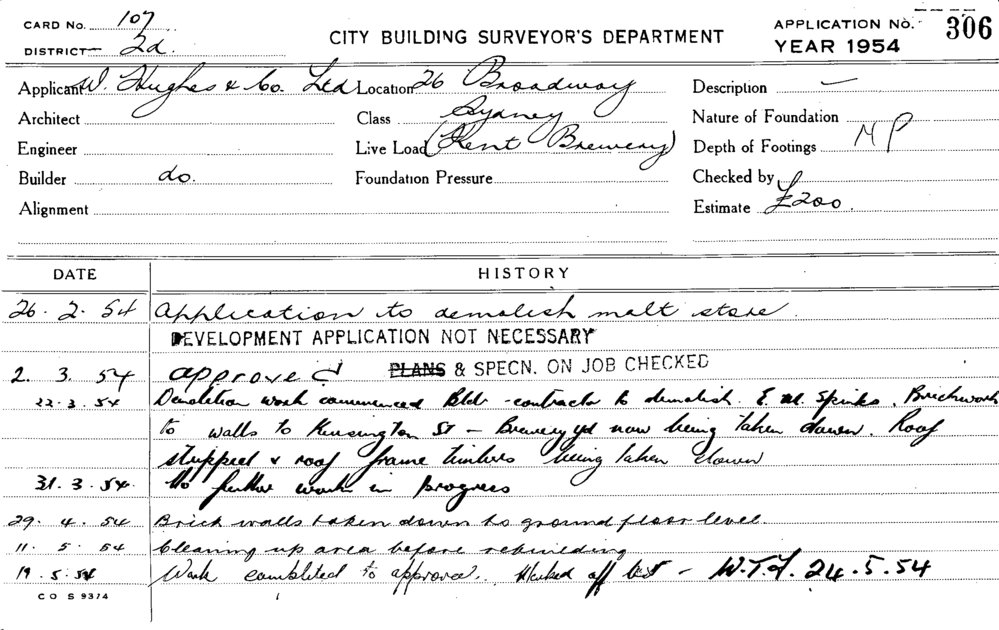 CARD No. 107
DISTRICT 2d.
CITY BUILDING SURVEYOR'S DEPARTMENT
APPLICATION No. 306
YEAR 1954
Applicant W. Hughes & Co. Ltd Location 26 Broadway Description —
Architect Class Sydney Nature of Foundation
Engineer Live Load (Kent Brewery) Depth of Footings MP
Builder do. Foundation Pressure Checked by
Alignment Estimate £200.
DATE HISTORY
26. 2. 54 Application to demolish malt store.
DEVELOPMENT APPLICATION NOT NECESSARY
2. 3. 54 approved PLANS & SPECN. ON JOB CHECKED
22.3.54 Demolition work commenced Bldr - contractor to demolish. E. M. Spinks. Brickwork
to walls to Kensington St — Brewery yd now being taken down. Roof
stripped & roof frame timbers being taken down
31. 3. 54. No further work in progress
29. 4. 54 Brick walls taken down to ground floor level.
11. 5. 54 Cleaning up area before rebuilding
19. 5. 54 Work completed to approval. Marked off list — W.T.F. 24.5.54
CO S 9374